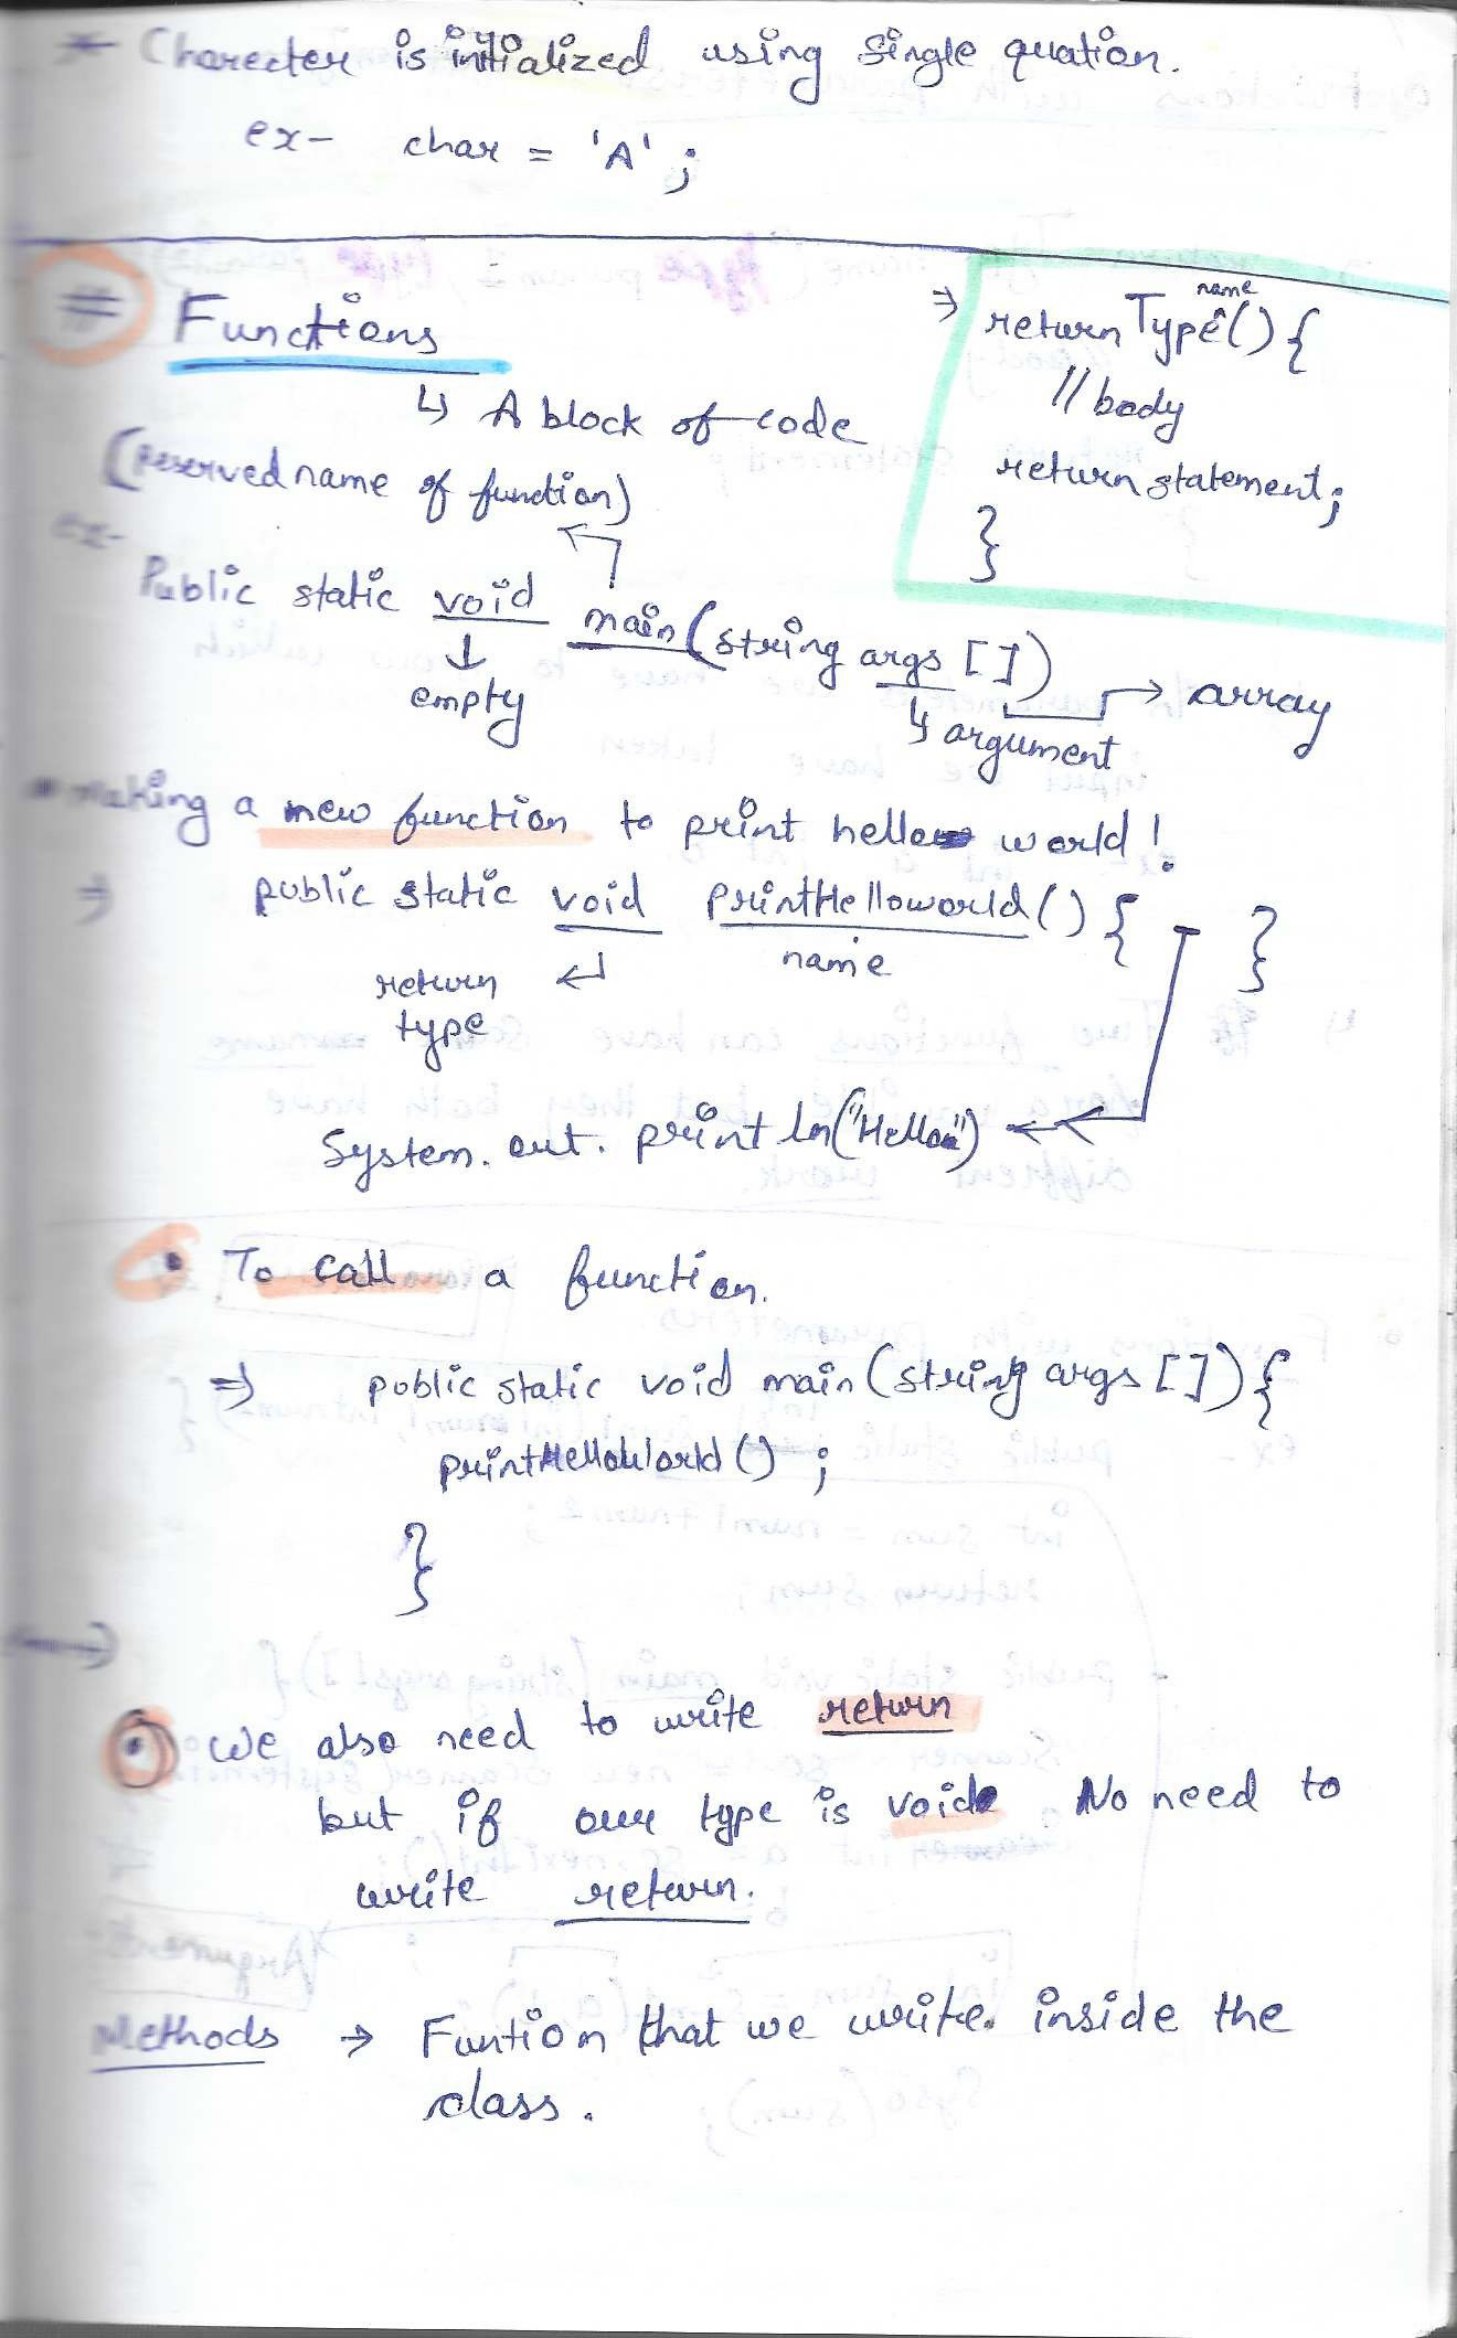 * Charecter is initialized using single quation.
ex- char = 'A' ;
# Functions
↳ A block of code
⇒ returnType name() {
// body
return statement;
}
(Reserved name of function)
ex-
Public static void main (string args [])
↓ empty
↳ argument
→ array
Making a new function to print hello world !
⇒ public static void printHelloworld () { }
return type
name
System. out. print ln("Hello")
• To call a function.
⇒ public static void main (string args []) {
printHelloWorld () ;
}
• We also need to write return
but if our type is void No need to
write return.
Methods → Funtion that we write. inside the
class.